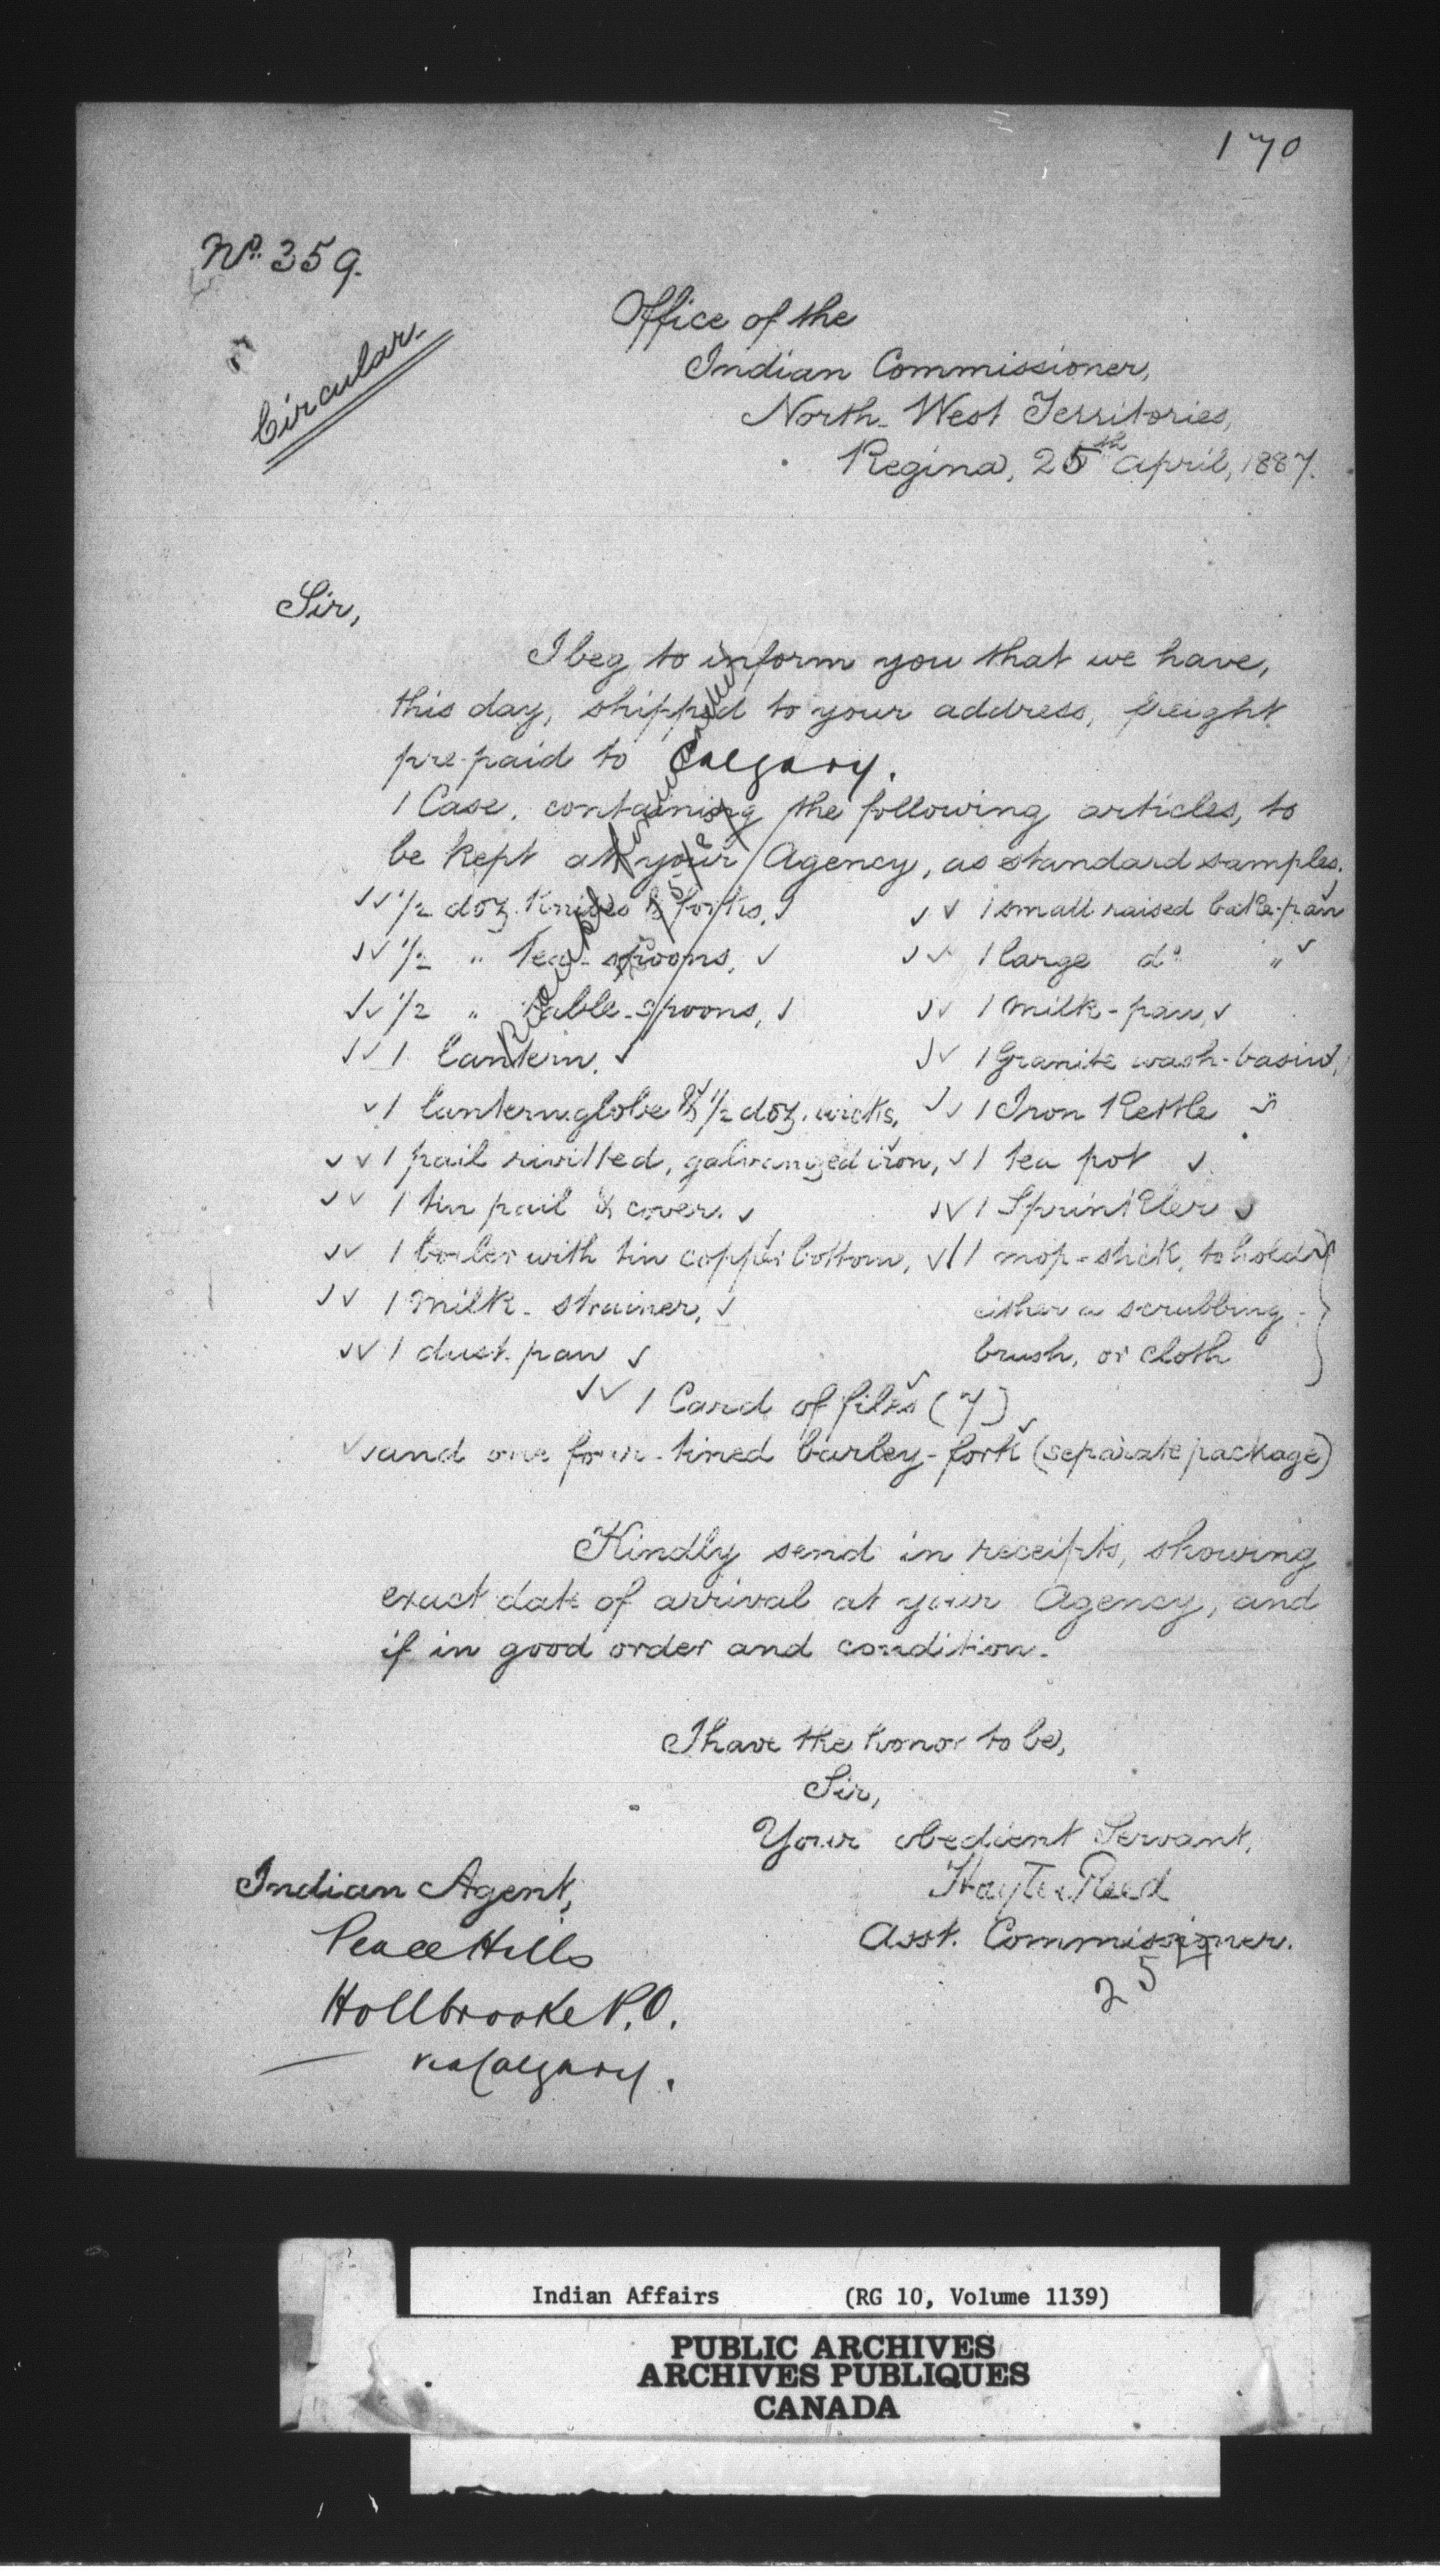 170
No. 359.
Circular
Office of the
Indian Commissioner,
North-West Territories,
Regina, 25th April, 1887.
Sir,
I beg to inform you that we have,
this day, shipped to your address, freight
pre-paid to Calgary.
1 Case, containing the following articles, to
be kept at your Agency, as standard samples,
✓✓ 1/2 doz. Knives & forks, ✓ ✓✓ 1 small raised bake-pan
✓✓ 1/2 " Tea-spoons, ✓ ✓✓ 1 large do " ✓
✓✓ 1/2 " Table-spoons, ✓ ✓✓ 1 milk-pan, ✓
✓✓ 1 lantern. ✓ ✓✓ 1 Granite wash-basin,
✓ 1 lantern globe & 1/2 doz. wicks, ✓✓ 1 Iron Kettle "
✓✓ 1 pail rivitted, galvanized iron, ✓ 1 tea pot ✓
✓✓ 1 tin pail & cover. ✓ ✓✓ 1 Sprinkler ✓
✓✓ 1 boiler with tin copper bottom, ✓✓ 1 mop-stick, to hold
✓✓ 1 milk-strainer, ✓ either a scrubbing-
✓✓ 1 dust-pan ✓ brush, or cloth
✓✓ 1 Card of files (7)
✓✓ and one four-tined barley-fork (separate package)
Kindly send in receipts, showing
exact date of arrival at your Agency, and
if in good order and condition.
I have the honor to be,
Sir,
Your obedient Servant,
Hayter Reed
Asst. Commissioner.
25
Indian Agent,
Peace Hills
Hollbrooke P.O.
via Calgary.
Indian Affairs (RG 10, Volume 1139)
PUBLIC ARCHIVES
ARCHIVES PUBLIQUES
CANADA